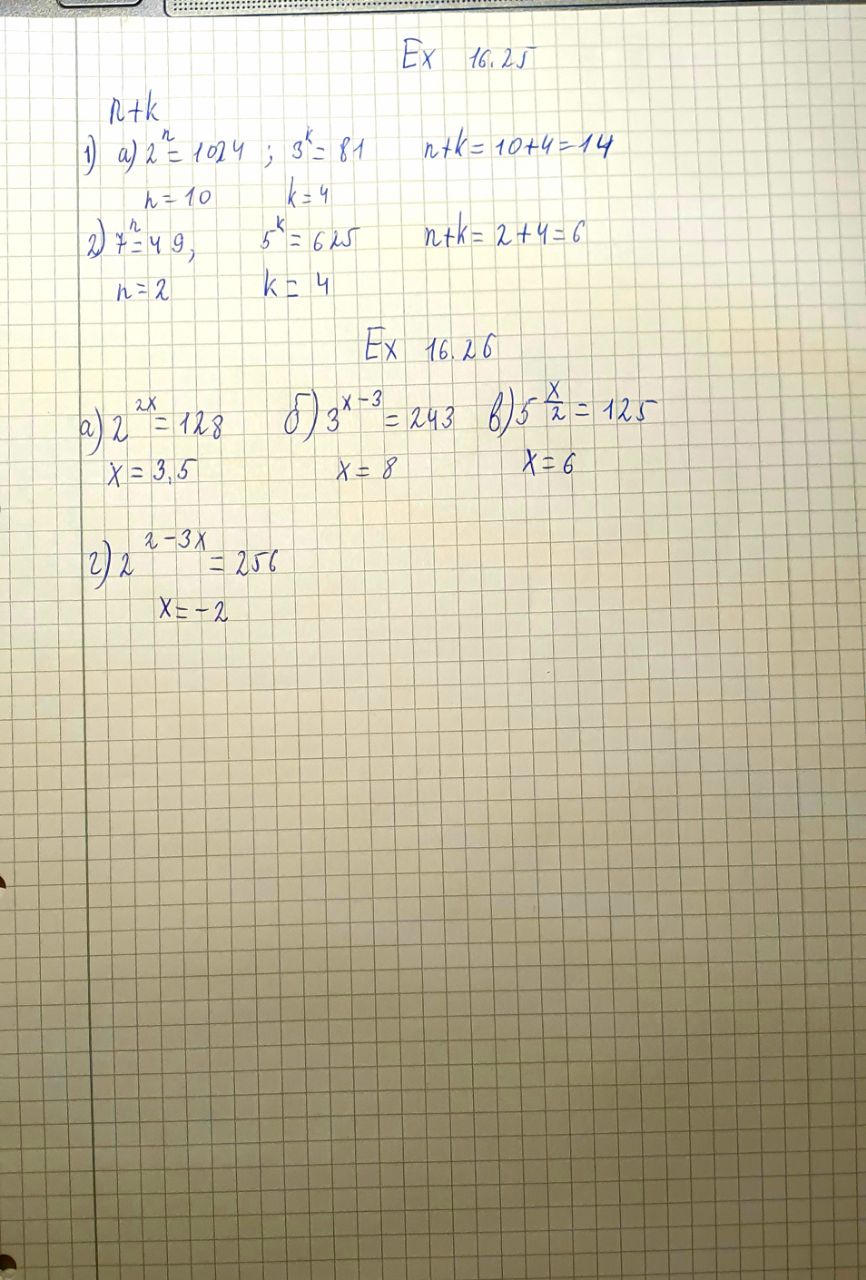 Ex 16.25
n+k
1) a) 2^n = 1024 ; 3^k = 81 n+k = 10+4 = 14
n = 10 k = 4
2) 7^n = 49, 5^k = 625 n+k = 2+4 = 6
n = 2 k = 4
Ex 16.26
а) 2^{2x} = 128 б) 3^{x-3} = 243 в) 5^{x/2} = 125
x = 3,5 x = 8 x = 6
г) 2^{2-3x} = 256
x = -2